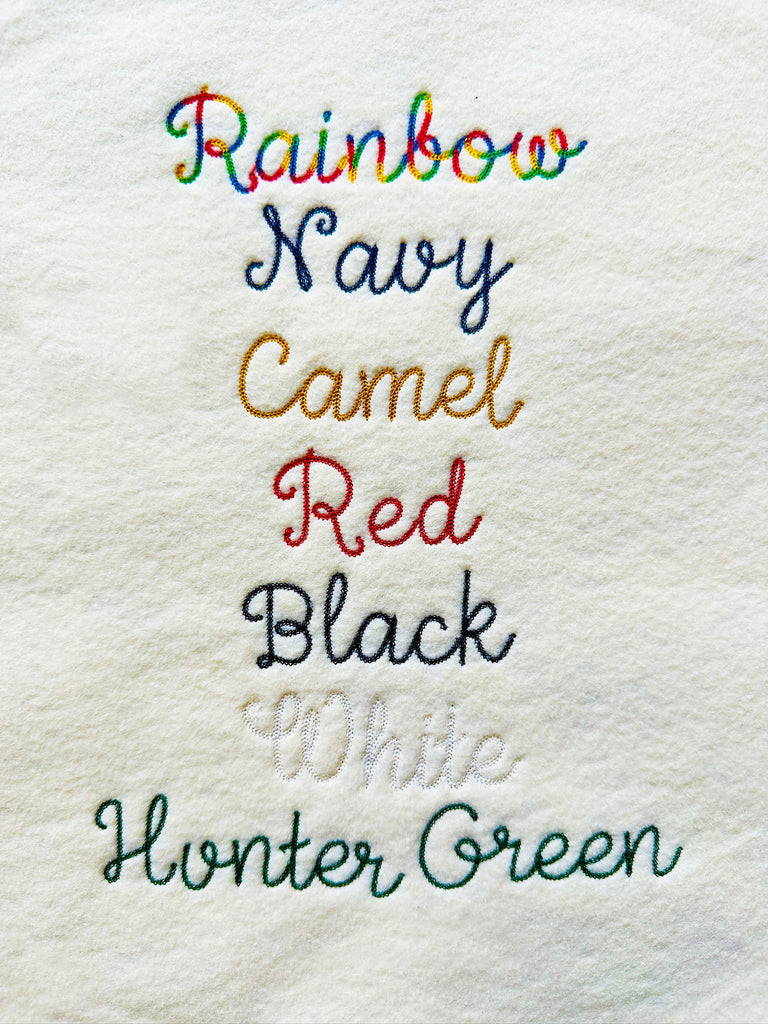 Rainbow
Navy
Camel
Red
Black
White
Hunter Green